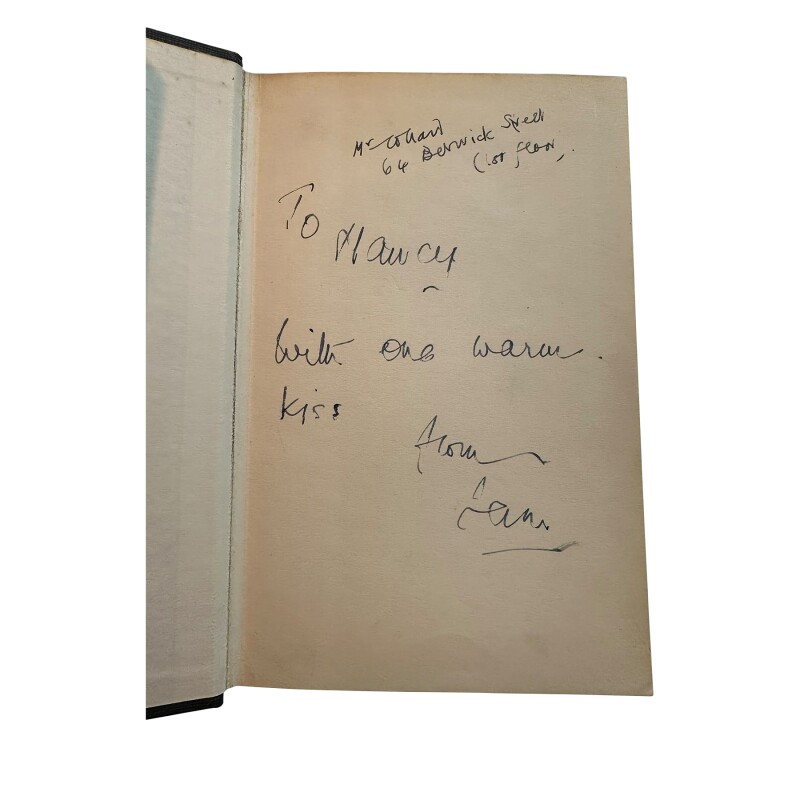 Mr Collard
64 Berwick Street
(1st floor,
To
Nancy
With one warm
kiss
from